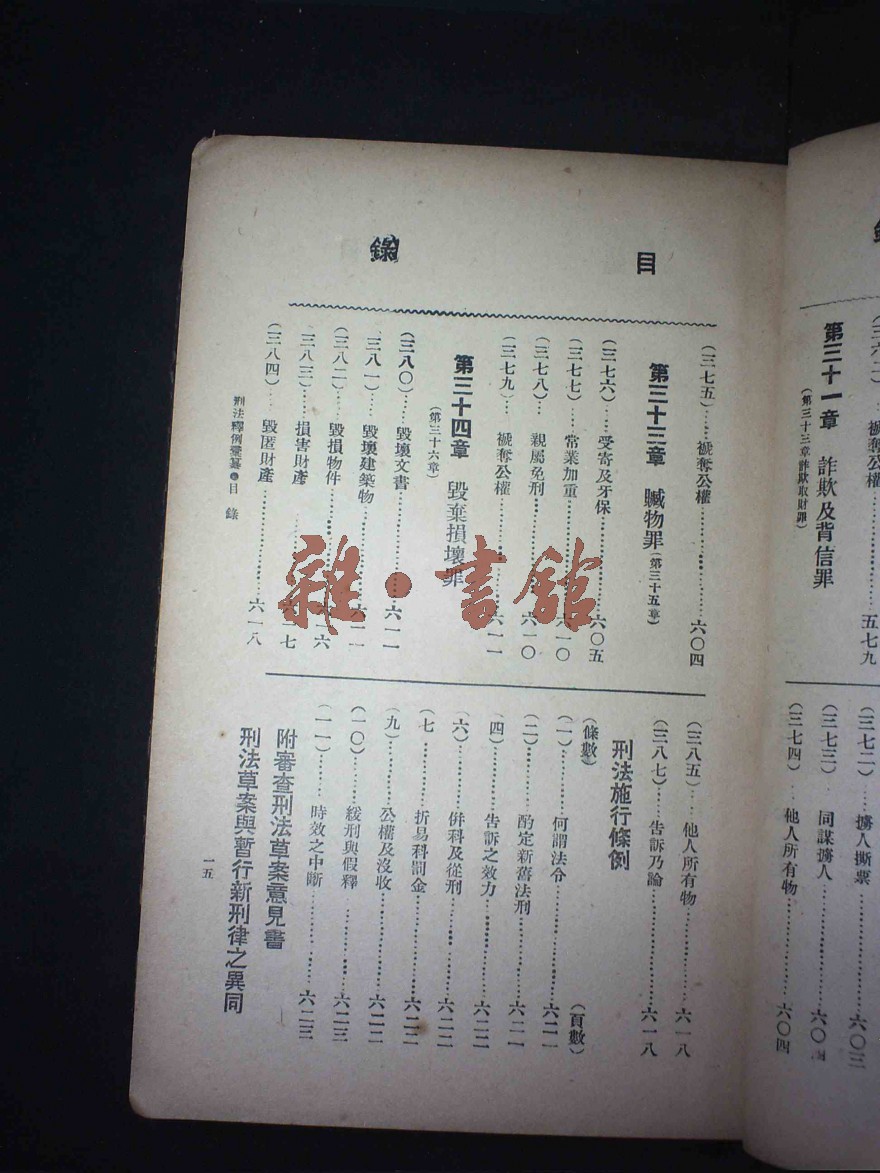 第三十一章　詐欺及背信罪
(第三十三章詐欺取財罪)
褫奪公權……五七九
(三七二)…擄人撕票……六〇三
(三七三)同謀擄人……六〇四
(三七四)…他人所有物……六〇四
目錄
(三七五)……褫奪公權……六〇四
第三十三章　贓物罪(第三十五章)
(三七六)……受寄及牙保……六〇五
(三七七)……常業加重……六一〇
(三七八)……親屬免刑……六一〇
(三七九)…褫奪公權……六一一
第三十四章　毀棄損壞罪
(第三十六章)
(三八〇)……毀壞文書……六一一
(三八一)……毀壞建築物……六一一
(三八二)……毀損物件……六一六
(三八三)……損害財產……六一七
(三八四)…毀匿財產……六一八
(三八五)…他人所有物……六一八
(三八七)……告訴乃論……六一八
刑法施行條例
(條數)　(頁數)
(一)……何謂法令……六二一
(二)……酌定新舊法刑……六二一
(四)……告訴之效力……六二二
(六)……併科及從刑……六二二
(七……折易科罰金……六二二
(九)……公權及沒收……六二二
(一〇)……緩刑與假釋……六二三
(一一)……時效之中斷……六二三
附審查刑法草案意見書
刑法草案與暫行新刑律之異同
刑法釋例彙纂　目錄
一五
雜·書館